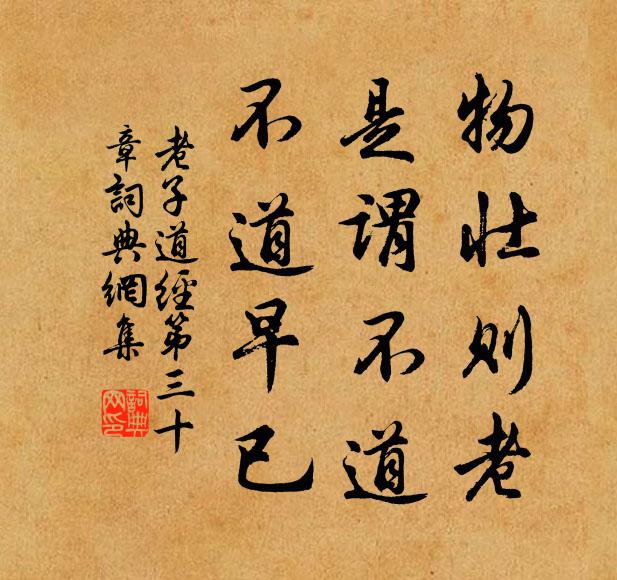 物壮则老
是谓不道
不道早已
老子道經第三十
章詞典網集
詞典
网印